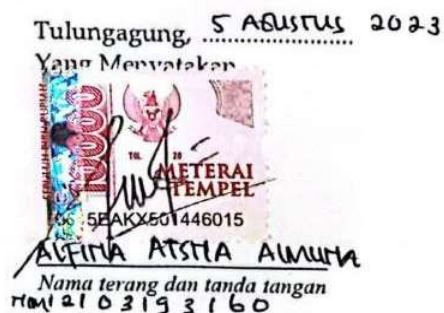 Tulungagung, 5 AGUSTUS 2023
Yang Menyatakan
10000
TGL. 20
METERAI
TEMPEL
5EAKX501446015
ALFITIA
Nama terang dan tanda tangan
NIM 12103193160